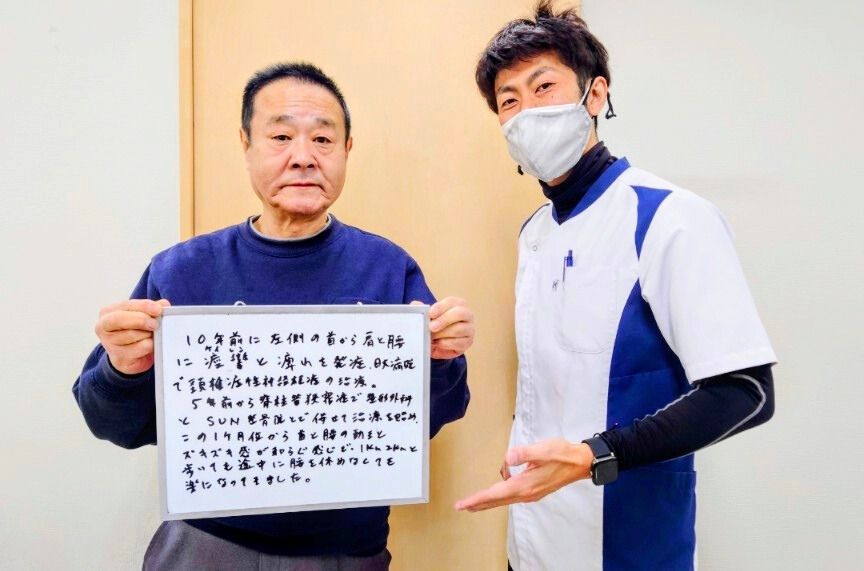 10年前に左側の首から肩と腰
に痙攣と痺れを発症、日大病院
で頚椎症性神経根症の治療。
5年前から脊柱管狭窄症で整形外科
とSUN整骨院とで併せて治療を始め、
この1ケ月位から首と腰の動きと
ズキズキ感が和らぐ感じで、1Km2Kmと
歩いても途中に腰を休めなくても
楽になってきました。